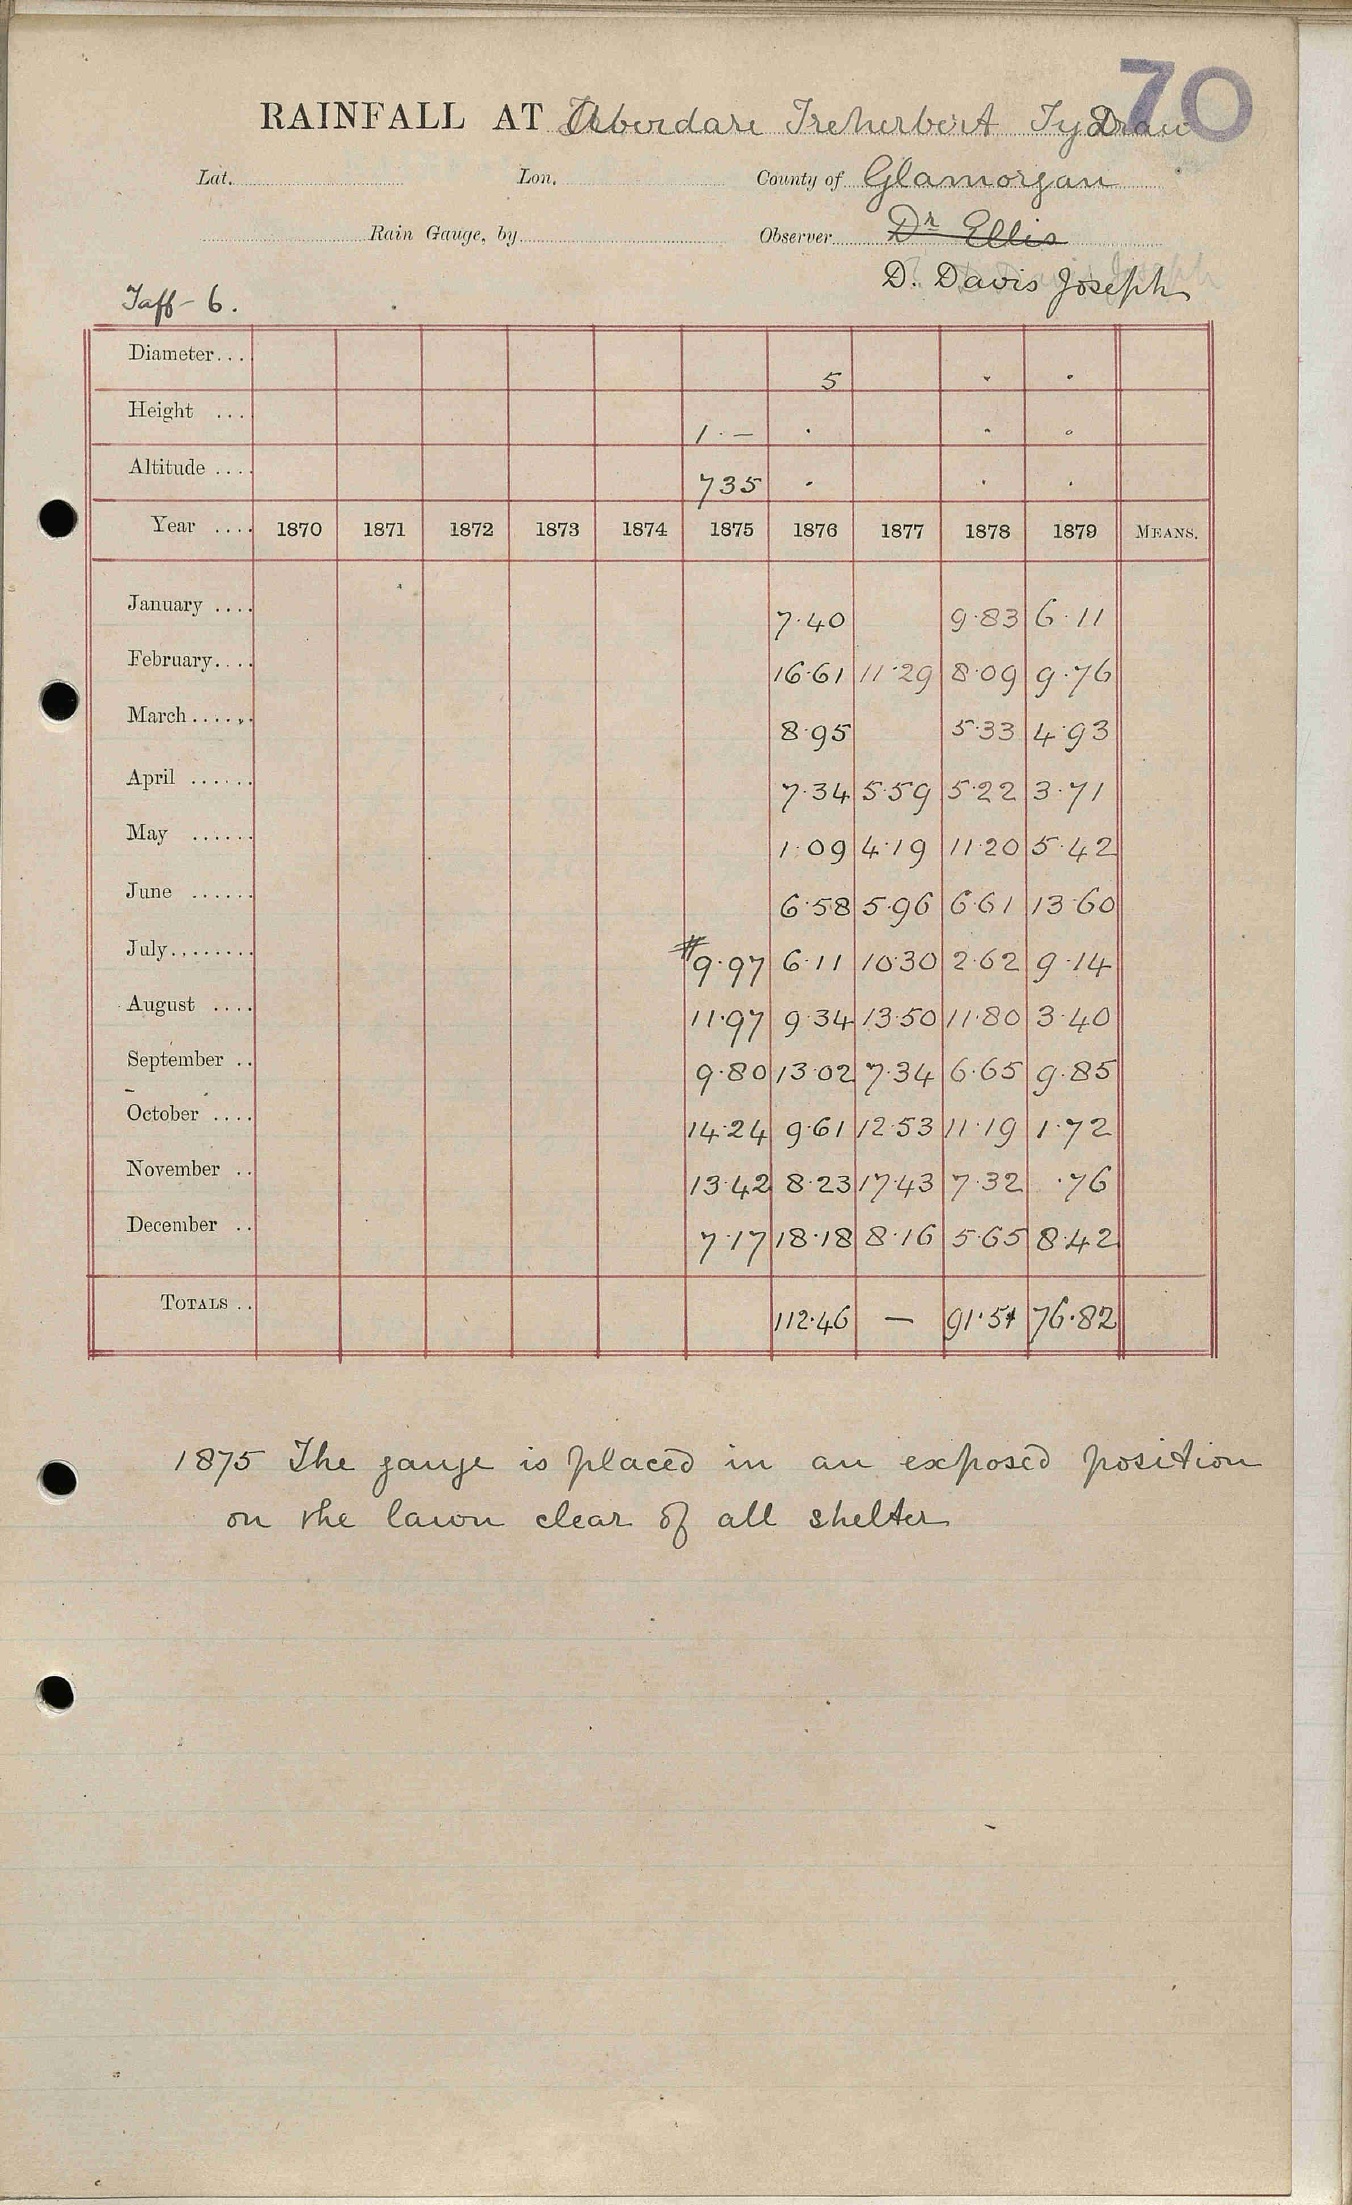 70
RAINFALL AT Aberdare Treherbert Tydraw
Lat. Lon. County of Glamorgan
Rain Gauge, by Observer Dr Ellis
D. Davis Joseph
Taff - 6.
Diameter... 5 . .
Height ... 1 . — . . .
Altitude .... 735 . . .
Year .... 1870 1871 1872 1873 1874 1875 1876 1877 1878 1879 MEANS.
January .... 7.40 9.83 6.11
February.... 16.61 11.29 8.09 9.76
March...... 8.95 5.33 4.93
April ...... 7.34 5.59 5.22 3.71
May ...... 1.09 4.19 11.20 5.42
June ...... 6.58 5.96 6.61 13.60
July........ #9.97 6.11 10.30 2.62 9.14
August .... 11.97 9.34 13.50 11.80 3.40
September .. 9.80 13.02 7.34 6.65 9.85
October .... 14.24 9.61 12.53 11.19 1.72
November .. 13.42 8.23 17.43 7.32 .76
December .. 7.17 18.18 8.16 5.65 8.42
TOTALS .. 112.46 — 91.51 76.82
1875 The gauge is placed in an exposed position
on the lawn clear of all shelter